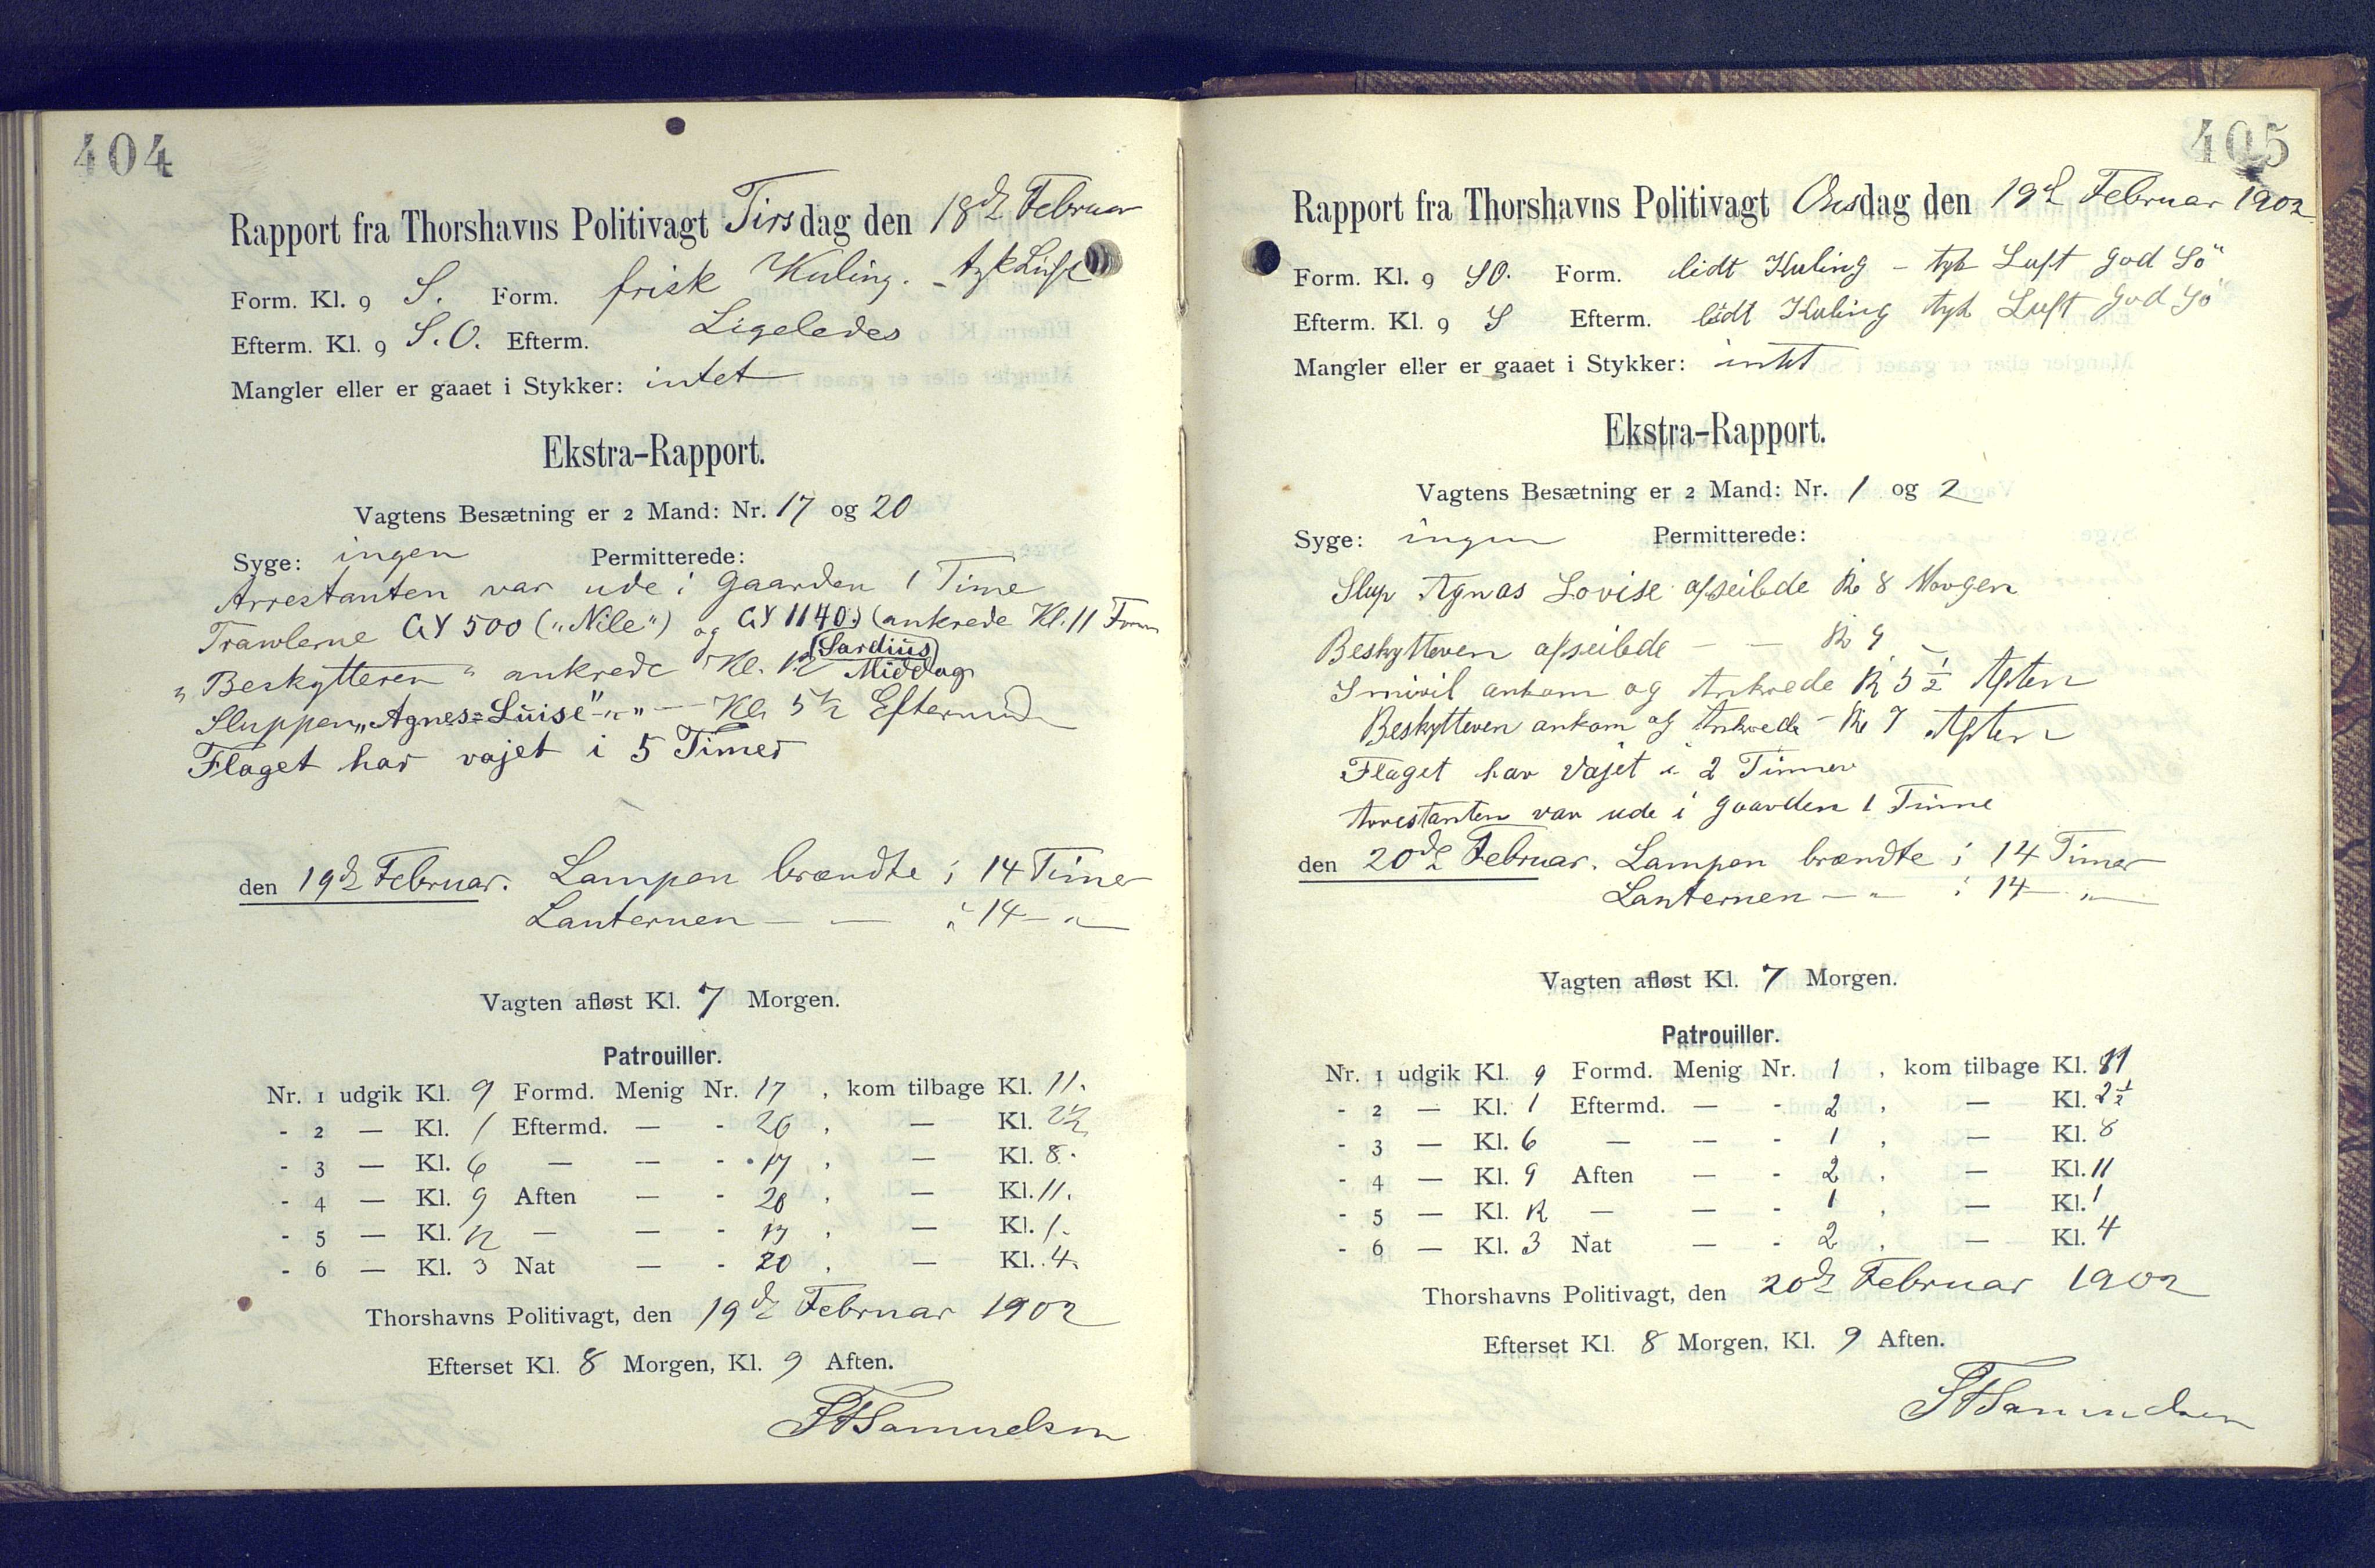 404
Rapport fra Thorshavns Politivagt Tirsdag den 18d Februar
Form. Kl. 9 S. Form. frisk Kuling. - tyk Luft
Efterm. Kl. 9 S.O. Efterm. Ligeledes
Mangler eller er gaaet i Stykker: intet
Ekstra-Rapport.
Vagtens Besætning er 2 Mand: Nr. 17 og 20
Syge: ingen Permitterede:
Arrestanten var ude i Gaarden 1 Time
Trawlerne GY 500 („Nile") og GY 1140 (Sardius) ankrede Kl. 11 Form
„Beskytteren" ankrede Kl. 12 Middag
Sluppen „Agnes=Luise" -„- Kl. 5 1/2 Eftermid
Flaget har vajet i 5 Timer
den 19d Februar. Lampen brændte i 14 Timer
Lanternen — — i 14 — „
Vagten afløst Kl. 7 Morgen.
Patrouiller.
Nr. 1 udgik Kl. 9 Formd. Menig Nr. 17, kom tilbage Kl. 11.
- 2 — Kl. 1 Eftermd. — - 20, — Kl. 2 1/2
- 3 — Kl. 6 — — - 17, — Kl. 8.
- 4 — Kl. 9 Aften — - 20, — Kl. 11.
- 5 — Kl. 12 — — - 17, — Kl. 1.
- 6 — Kl. 3 Nat — - 20, — Kl. 4.
Thorshavns Politivagt, den 19d Februar 1902
Efterset Kl. 8 Morgen, Kl. 9 Aften.
Samuelsen
405
Rapport fra Thorshavns Politivagt Onsdag den 19d Februar 1902
Form. Kl. 9 SO. Form. lidt Kuling - tyk Luft god Sö
Efterm. Kl. 9 S Efterm. lidt Kuling tyk Luft god Sö
Mangler eller er gaaet i Stykker: intet
Ekstra-Rapport.
Vagtens Besætning er 2 Mand: Nr. 1 og 2
Syge: ingen Permitterede:
Slup Agnas Lovise afseilede Kl 8 Morgen
Beskytteren afseilede — — Kl 9 —
Smiril ankom og Ankrede Kl 5 1/2 Aften
Beskytteren ankom og Ankrede - Kl 7 Aften
Flaget har Vajet i 2 Timer
Arrestanten var ude i Gaarden 1 Time
den 20d Februar. Lampen brændte i 14 Timer
Lanternen — „ i 14 — „
Vagten afløst Kl. 7 Morgen.
Patrouiller.
Nr. 1 udgik Kl. 9 Formd. Menig Nr. 1, kom tilbage Kl. 11
- 2 — Kl. 1 Eftermd. — - 2, — Kl. 2 1/2
- 3 — Kl. 6 — — - 1, — Kl. 8
- 4 — Kl. 9 Aften — - 2, — Kl. 11
- 5 — Kl. 12 — — - 1, — Kl. 1
- 6 — Kl. 3 Nat — - 2, — Kl. 4
Thorshavns Politivagt, den 20d Februar 1902
Efterset Kl. 8 Morgen, Kl. 9 Aften.
Samuelsen